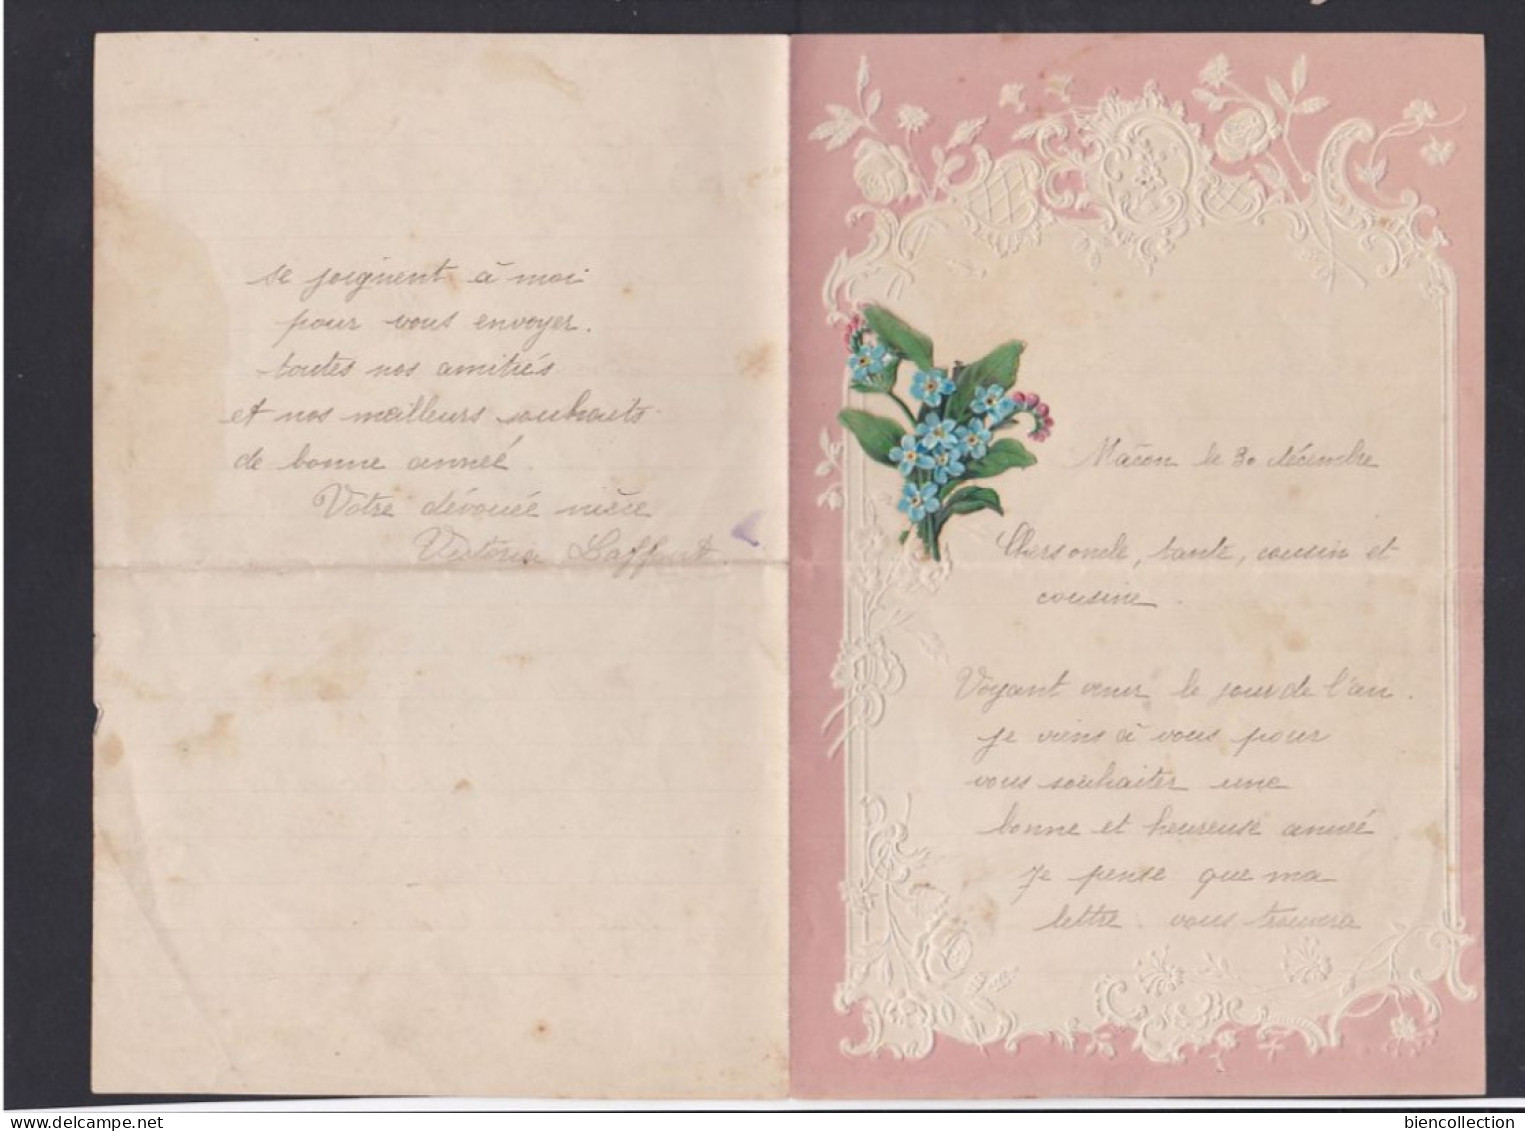 Mâcon le 30 décembre
Chers oncle, tante, cousin et
cousine.
Voyant venir le jour de l'an.
je viens à vous pour
vous souhaiter une
bonne et heureuse année.
Je pense que ma
lettre vous trouvera
se joignent à moi
pour vous envoyer.
toutes nos amitiés
et nos meilleurs souhaits
de bonne année.
Votre dévouée nièce
Victoria
delcampe.net
biencollection